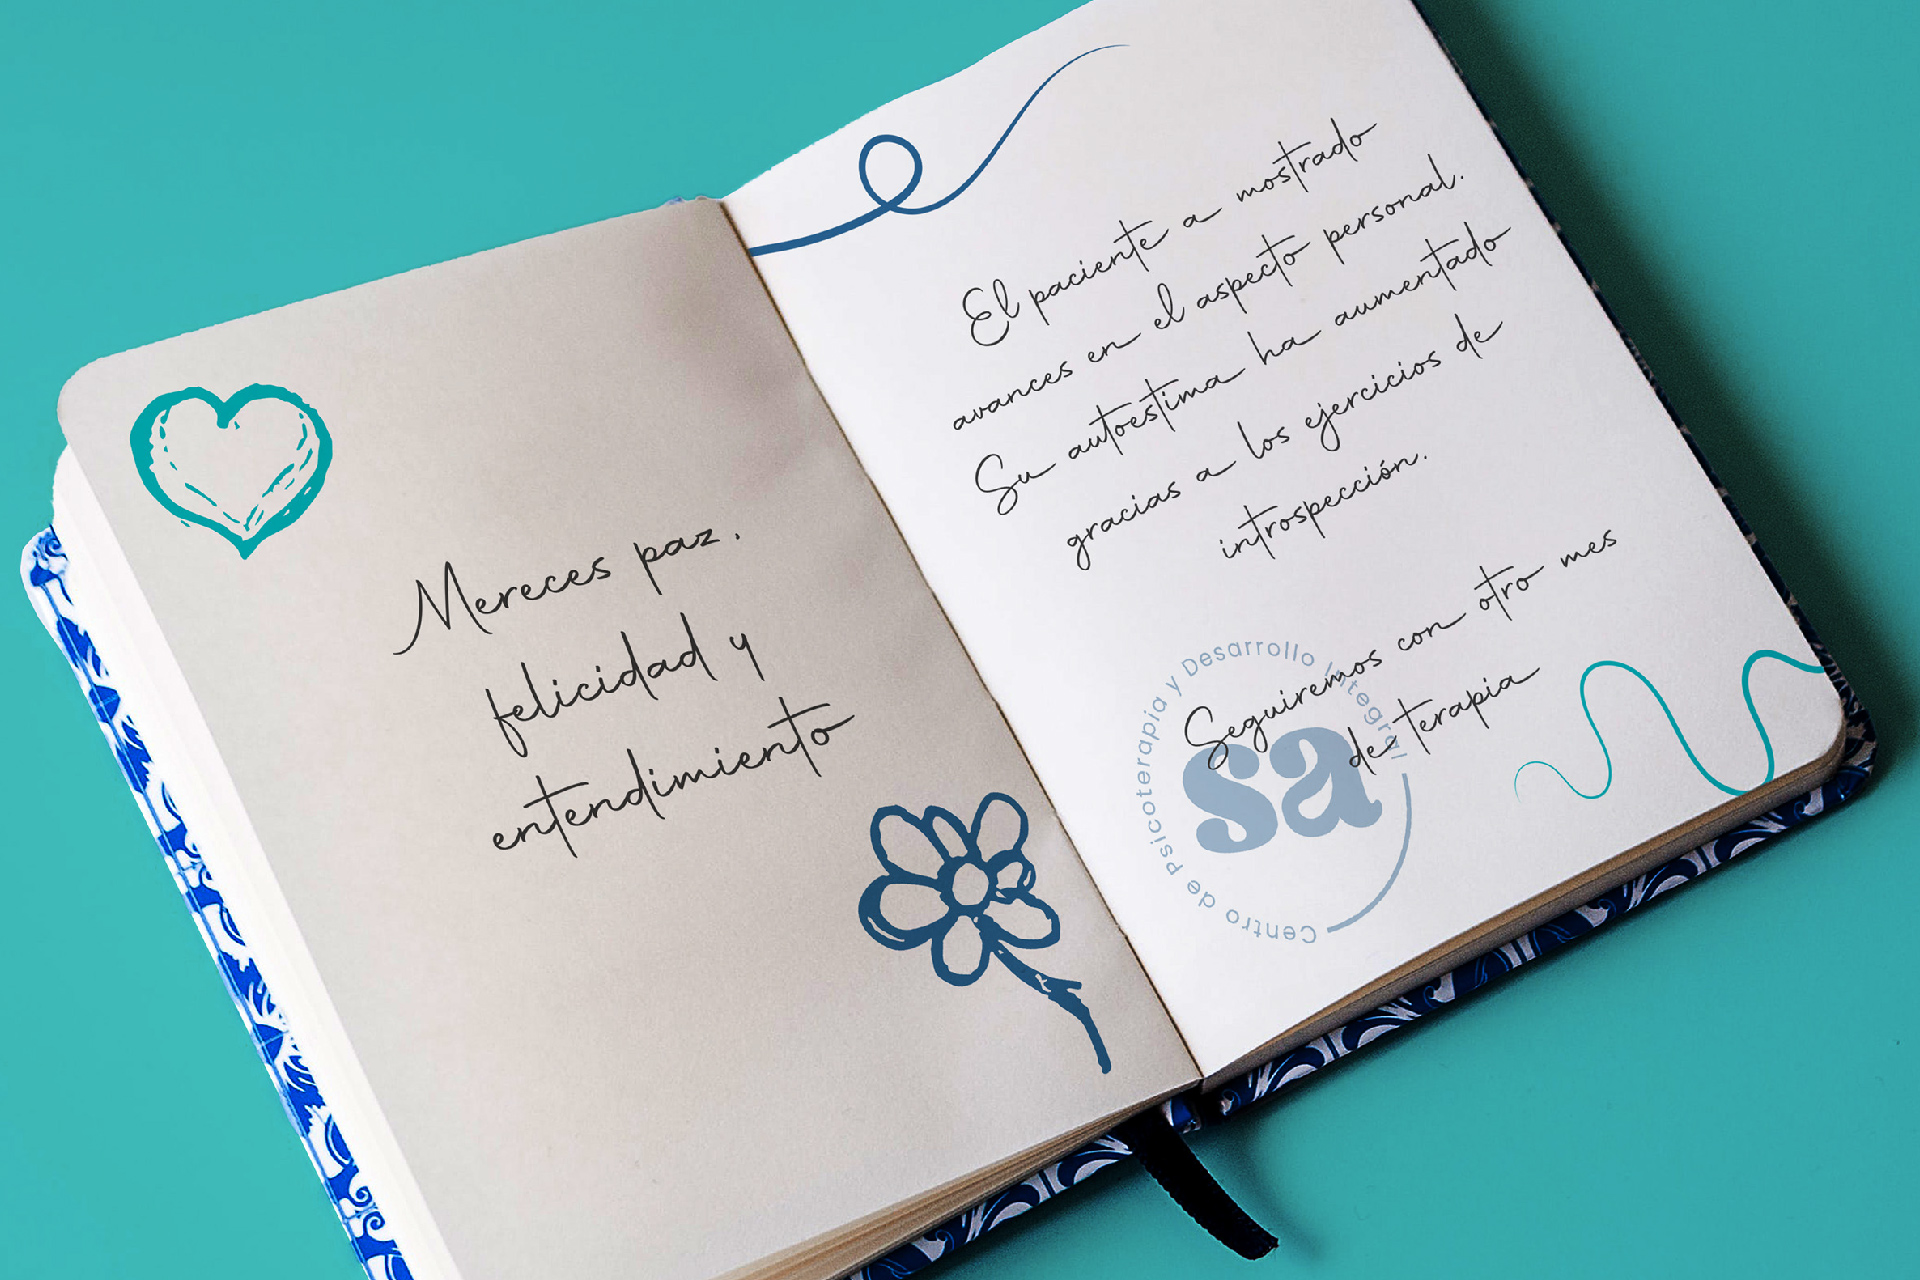 Mereces paz,
felicidad y
entendimiento
El paciente a mostrado
avances en el aspecto personal.
Su autoestima ha aumentado
gracias a los ejercicios de
introspección.
Seguiremos con otro mes
de terapia
Centro de Psicoterapia y Desarrollo Integral
sa